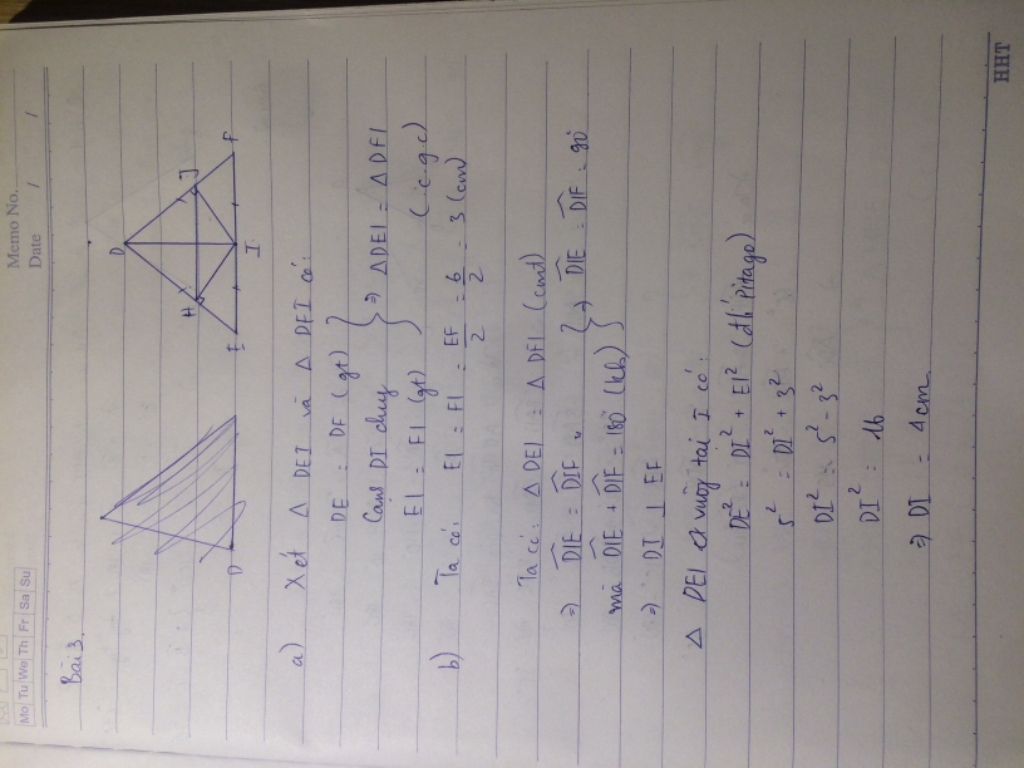 Memo No.
Date / /
Mo Tu We Th Fr Sa Su
Bài 3
D
H J
E I F
D
a) Xét Δ DEI và Δ DFI có:
DE = DF (gt)
Cạnh DI chung
EI = FI (gt)
⇒ ΔDEI = Δ DFI
(c.g.c)
b) Ta có: EI = FI = EF/2 = 6/2 = 3 (cm)
Ta có: Δ DEI = Δ DFI (cmt)
⇒ DIE = DIF
mà DIE + DIF = 180° (kb)
⇒ DIE = DIF = 90°
⇒ DI ⊥ EF
Δ DEI vuông tại I có:
DE² = DI² + EI² (đlí Pitago)
5² = DI² + 3²
DI² = 5² - 3²
DI² = 16
⇒ DI = 4 cm
HHT